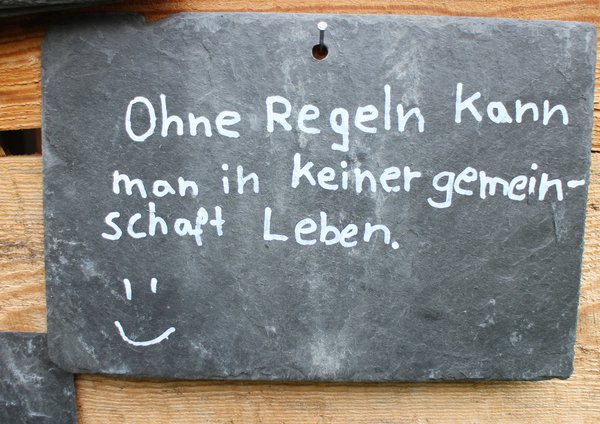 Ohne Regeln kann
man in keiner gemein-
schaft Leben.